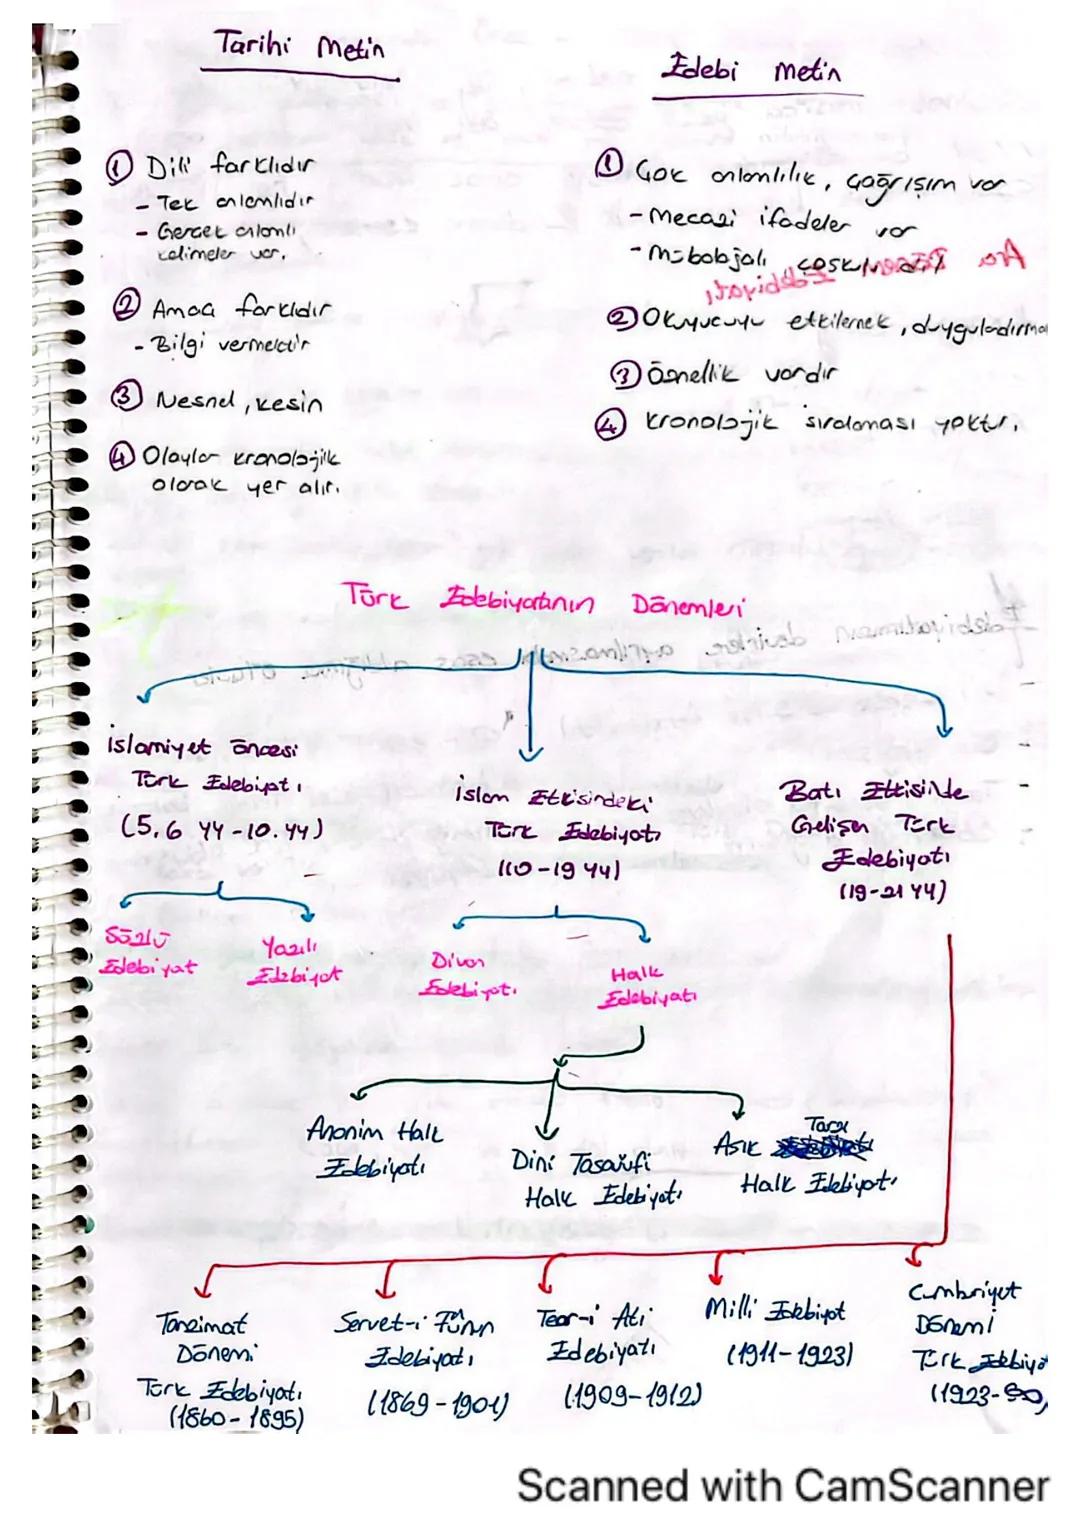 Tarihi Metin
① Dili farklıdır
- Tek anlamlıdır
- Gerçek anlamlı
kelimeler var.
② Amacı farklıdır
- Bilgi vermektir
③ Nesnel, kesin
④ Olaylar kronolojik
olarak yer alır.
Edebi Metin
① Çok anlamlılık, çağrışım var
- Mecazi ifadeler var
- Mübalağalı
② Okuyucuyu etkilemek, duygulandırma
③ Öznellik vardır
④ Kronolojik sıralaması yoktur.
Türk Edebiyatının Dönemleri
İslamiyet öncesi
Türk Edebiyatı
(5, 6 YY - 10. YY)
Sözlü
Edebiyat
Yazılı
Edebiyat
İslam Etkisindeki
Türk Edebiyatı
(10 - 19 YY)
Divan
Edebiyatı
Halk
Edebiyatı
Batı Etkisinde
Gelişen Türk
Edebiyatı
(19-21 YY)
Anonim Halk
Edebiyatı
Dini Tasavvufi
Halk Edebiyatı
Aşık Tarzı
Halk Edebiyatı
Tanzimat
Dönemi
Türk Edebiyatı
(1860 - 1895)
Servet-i Fünun
Edebiyatı
(1869 - 1901)
Fecr-i Ati
Edebiyatı
(1909-1912)
Milli Edebiyat
(1911-1923)
Cumhuriyet
Dönemi
Türk Edebiya
(1923-
Scanned with CamScanner